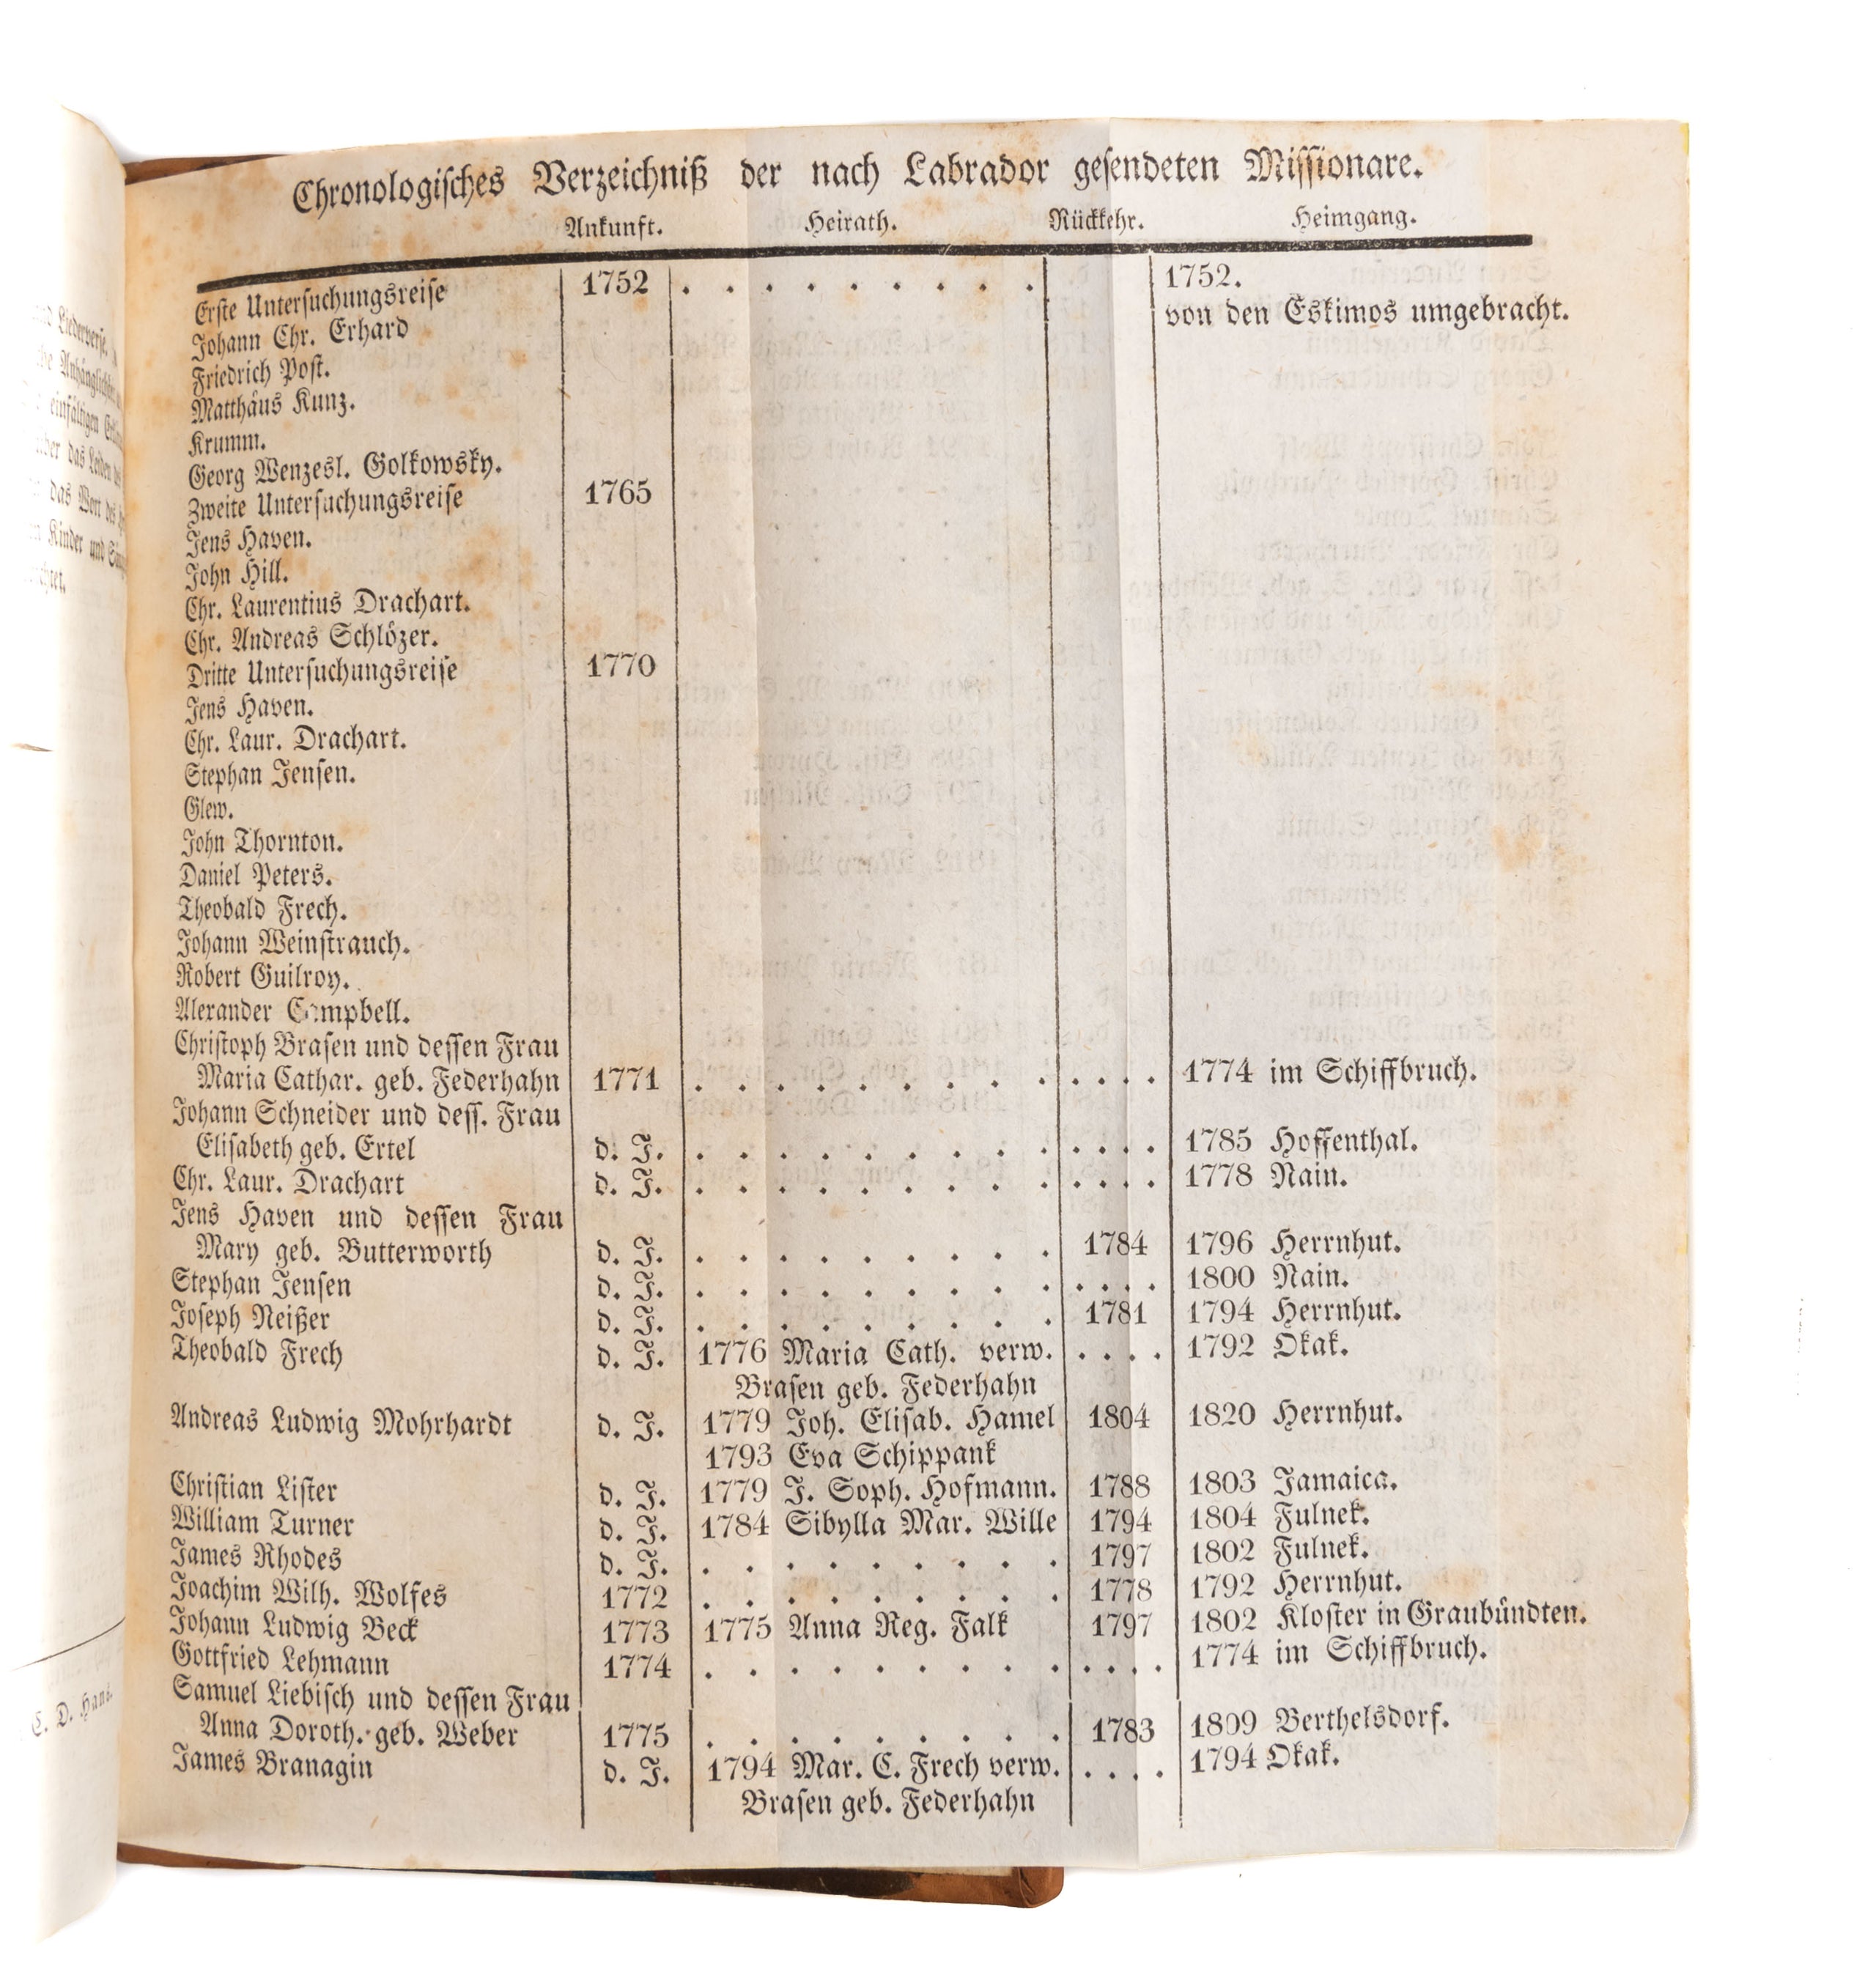 Chronologisches Verzeichniß der nach Labrador gesendeten Missionare.
Ankunft. Heirath. Rückkehr. Heimgang.
Erste Untersuchungsreise 1752 . . . . . . . . . 1752.
Johann Chr. Erhard von den Eskimos umgebracht.
Friedrich Post.
Matthäus Kunz.
Krumm.
Georg Wenzesl. Golkowsky.
Zweite Untersuchungsreise 1765
Jens Haven.
John Hill.
Chr. Laurentius Drachart.
Chr. Andreas Schlözer.
Dritte Untersuchungsreise 1770
Jens Haven.
Chr. Laur. Drachart.
Stephan Jensen.
Glew.
John Thornton.
Daniel Peters.
Theobald Frech.
Johann Weinstrauch.
Robert Guilroy.
Alexander Campbell.
Christoph Brasen und dessen Frau
Maria Cathar. geb. Federhahn 1771 . . . . . . . . . . . . 1774 im Schiffbruch.
Johann Schneider und dess. Frau
Elisabeth geb. Ertel d. J. . . . . . . . . . . . . 1785 Hoffenthal.
Chr. Laur. Drachart d. J. . . . . . . . . . . . . 1778 Nain.
Jens Haven und dessen Frau
Mary geb. Butterworth d. J. . . . . . . . . . 1784 1796 Herrnhut.
Stephan Jensen d. J. . . . . . . . . . . . . 1800 Nain.
Joseph Neißer d. J. . . . . . . . . . 1781 1794 Herrnhut.
Theobald Frech d. J. 1776 Maria Cath. verw. . . . . 1792 Okak.
Brasen geb. Federhahn
Andreas Ludwig Mohrhardt d. J. 1779 Joh. Elisab. Hamel 1804 1820 Herrnhut.
1793 Eva Schippank
Christian Lister d. J. 1779 J. Soph. Hofmann. 1788 1803 Jamaica.
William Turner d. J. 1784 Sibylla Mar. Wille 1794 1804 Fulnek.
James Rhodes d. J. . . . . . . . . . 1797 1802 Fulnek.
Joachim Wilh. Wolfes 1772 . . . . . . . . . 1778 1792 Herrnhut.
Johann Ludwig Beck 1773 1775 Anna Reg. Falk 1797 1802 Kloster in Graubündten.
Gottfried Lehmann 1774 . . . . . . . . . . . . . 1774 im Schiffbruch.
Samuel Liebisch und dessen Frau
Anna Doroth. geb. Weber 1775 . . . . . . . . . 1783 1809 Berthelsdorf.
James Branagin d. J. 1794 Mar. C. Frech verw. . . . . 1794 Okak.
Brasen geb. Federhahn